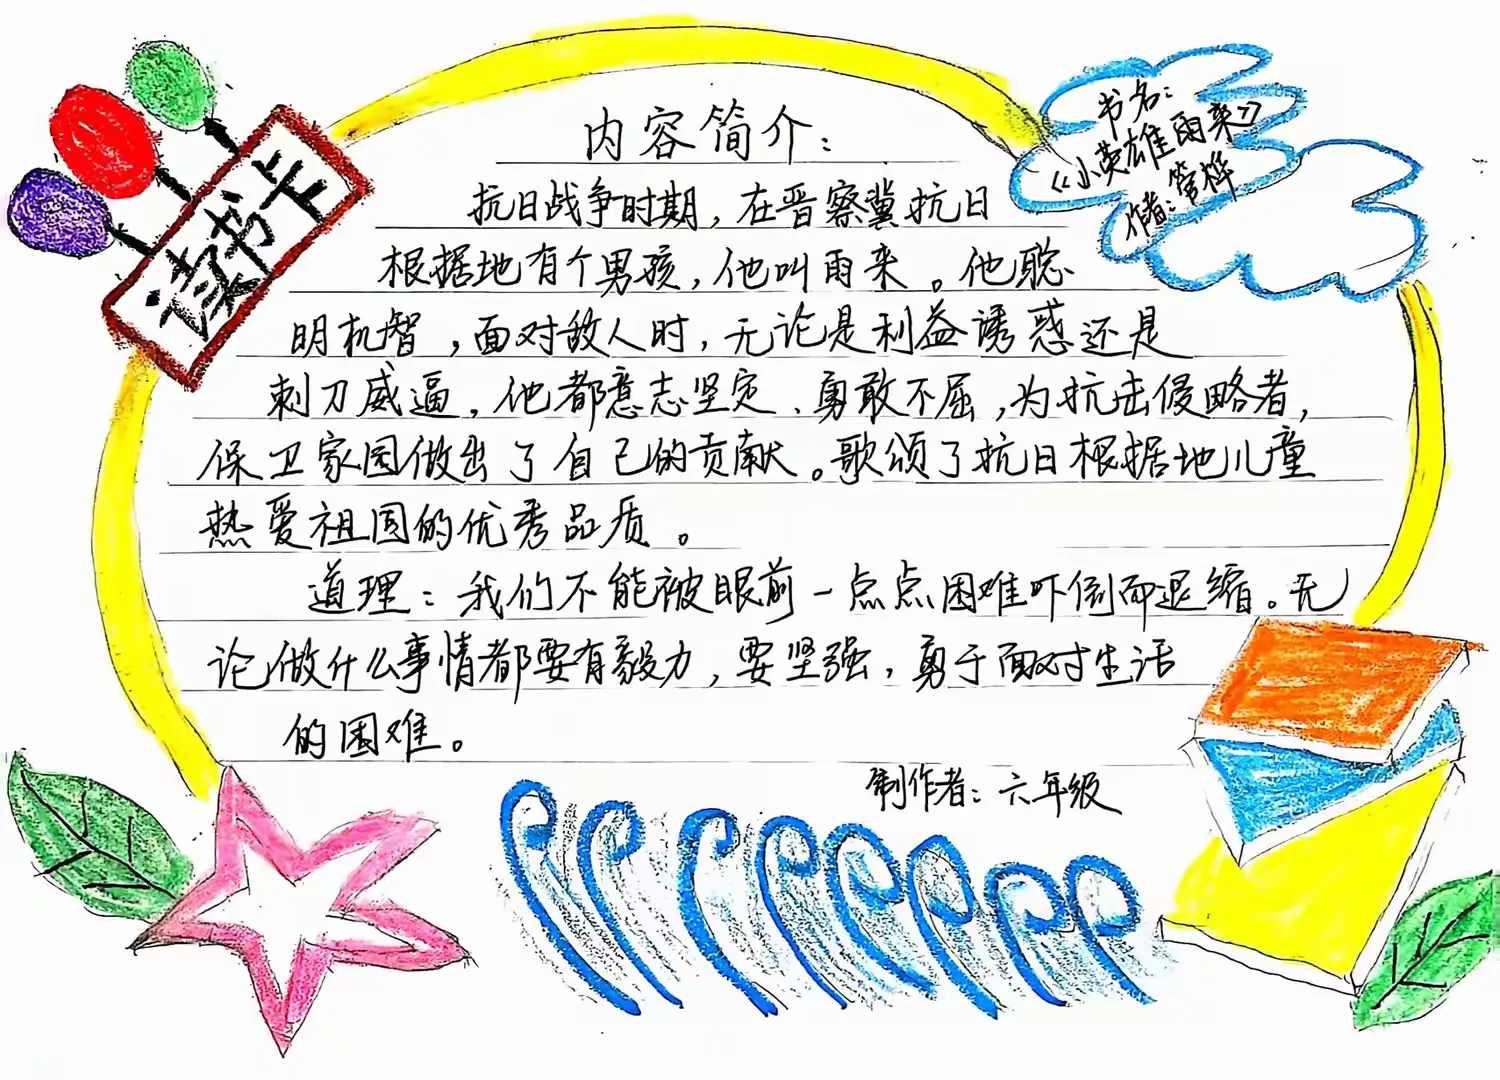 读书卡
书名：
《小英雄雨来》
作者：管桦
内容简介：
抗日战争时期，在晋察冀抗日
根据地有个男孩，他叫雨来。他聪
明机智，面对敌人时，无论是利益诱惑还是
刺刀威逼，他都意志坚定、勇敢不屈，为抗击侵略者，
保卫家园做出了自己的贡献。歌颂了抗日根据地儿童
热爱祖国的优秀品质。
道理：我们不能被眼前一点点困难吓倒而退缩。无
论做什么事情都要有毅力，要坚强，勇于面对生活
的困难。
制作者：六年级